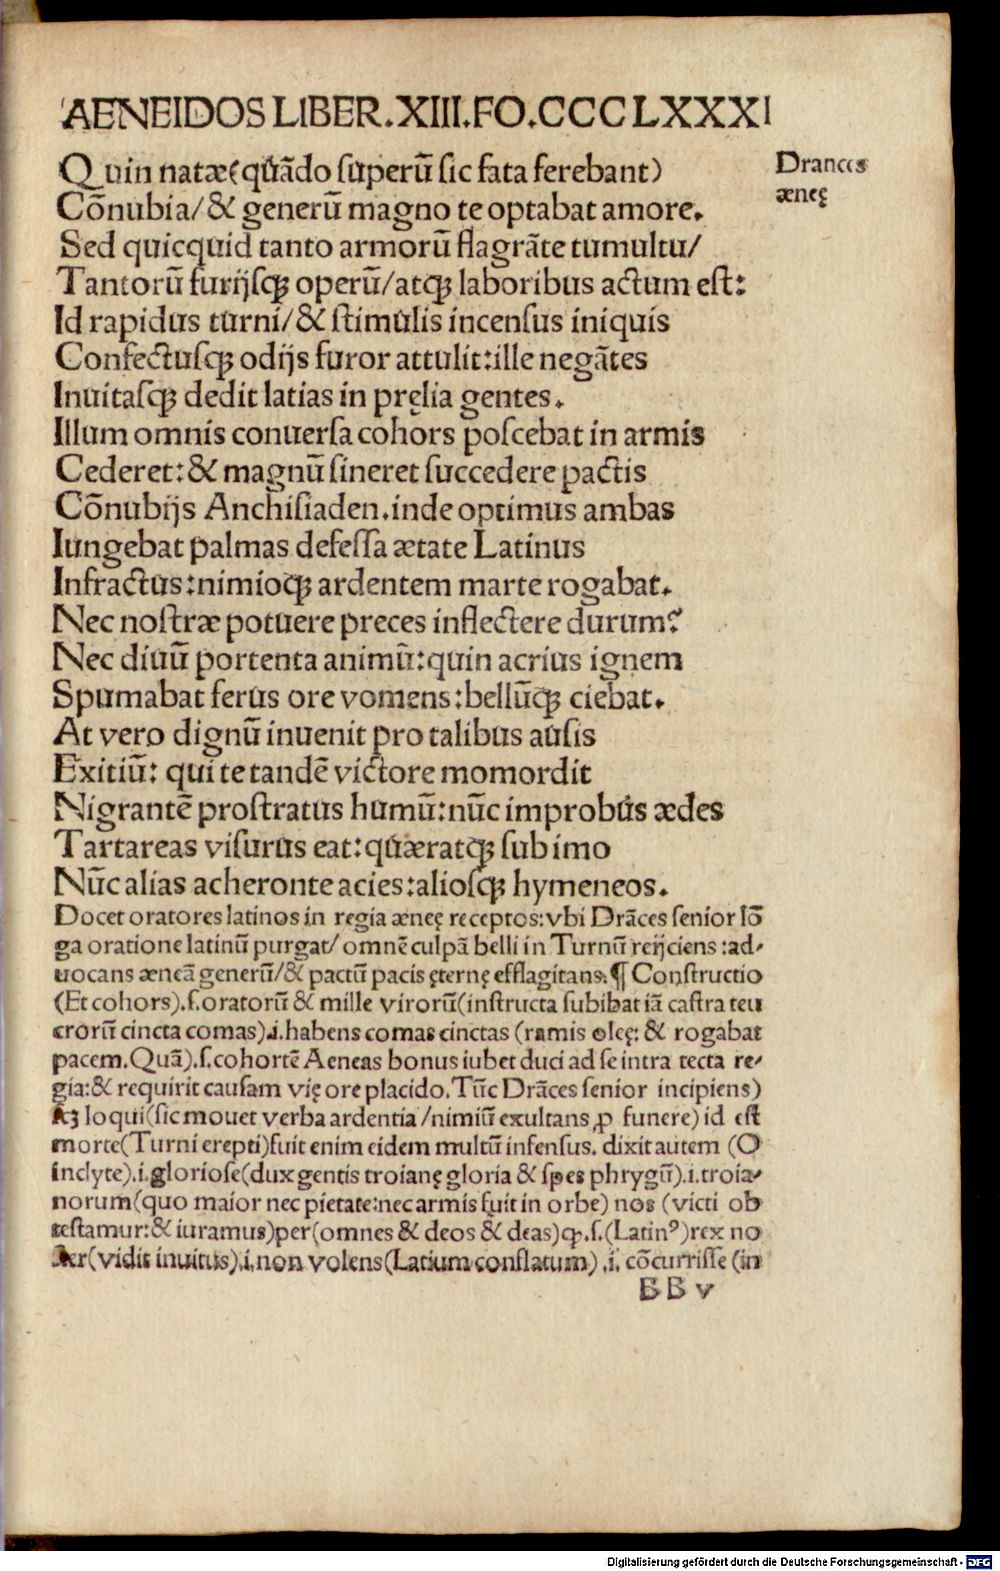 AENEIDOS LIBER.XIII.FO.CCCLXXXI
Quin natæ(qũãdo superũ sic fata ferebant)
Cõnubia/& generũ magno te optabat amore.
Sed quicquid tanto armorũ flagrãte tumultu/
Tantorũ furijsqꝫ operũ/atqꝫ laboribus actum est:
Id rapidus turni/& stimulis incensus iniquis
Confectusqꝫ odijs furor attulit:ille negãtes
Inuitasqꝫ dedit latias in pręlia gentes.
Illum omnis conuersa cohors poscebat in armis
Cederet:& magnũ sineret succedere pactis
Cõnubijs Anchisiaden.inde optimus ambas
Iungebat palmas defessa ætate Latinus
Infractus:nimioqꝫ ardentem marte rogabat.
Nec nostræ potuere preces inflectere durum?
Nec diuũ portenta animũ:quin acrius ignem
Spumabat ferus ore vomens:bellũqꝫ ciebat.
At vero dignũ inuenit pro talibus ausis
Exitiũ: qui te tandẽ victore momordit
Nigrantẽ prostratus humũ:nũc improbus ædes
Tartareas visurus eat:quæratqꝫ sub imo
Nũc alias acheronte acies:aliosqꝫ hymeneos.
Drances
æneę
Docet oratores latinos in regia æneę receptos:vbi Drãces senior lõ
ga oratione latinũ purgat/ omnẽ culpã belli in Turnũ reijciens:ad-
uocans æneã generũ/& pactũ pacis ęternę efflagitans.¶ Constructio
(Et cohors).s.oratorũ & mille virorũ(instructa subibat iã castra teu
crorũ cincta comas).i.habens comas cinctas (ramis oleę: & rogabat
pacem.Quã).s.cohortẽ Aeneas bonus iubet duci ad se intra tecta re-
gia:& requirit causam vię ore placido.Tũc Drãces senior incipiens)
loqui(sic mouet verba ardentia/nimiũ exultans ꝓ funere) id est
morte(Turni erepti)fuit enim eidem multũ infensus. dixit autem (O
inclyte).i.gloriose(dux gentis troianę gloria & spes phrygũ).i.troia-
norum(quo maior nec pietate:nec armis fuit in orbe) nos (victi ob
testamur:& iuramus)per(omnes & deos & deas)ꝙ.s.(Latinꝰ)rex no
ster(vidit inuitus).i.non volens(Latium conflatum) .i. cõcurrisse (in
BB v
Digitalisierung gefördert durch die Deutsche Forschungsgemeinschaft - DFG